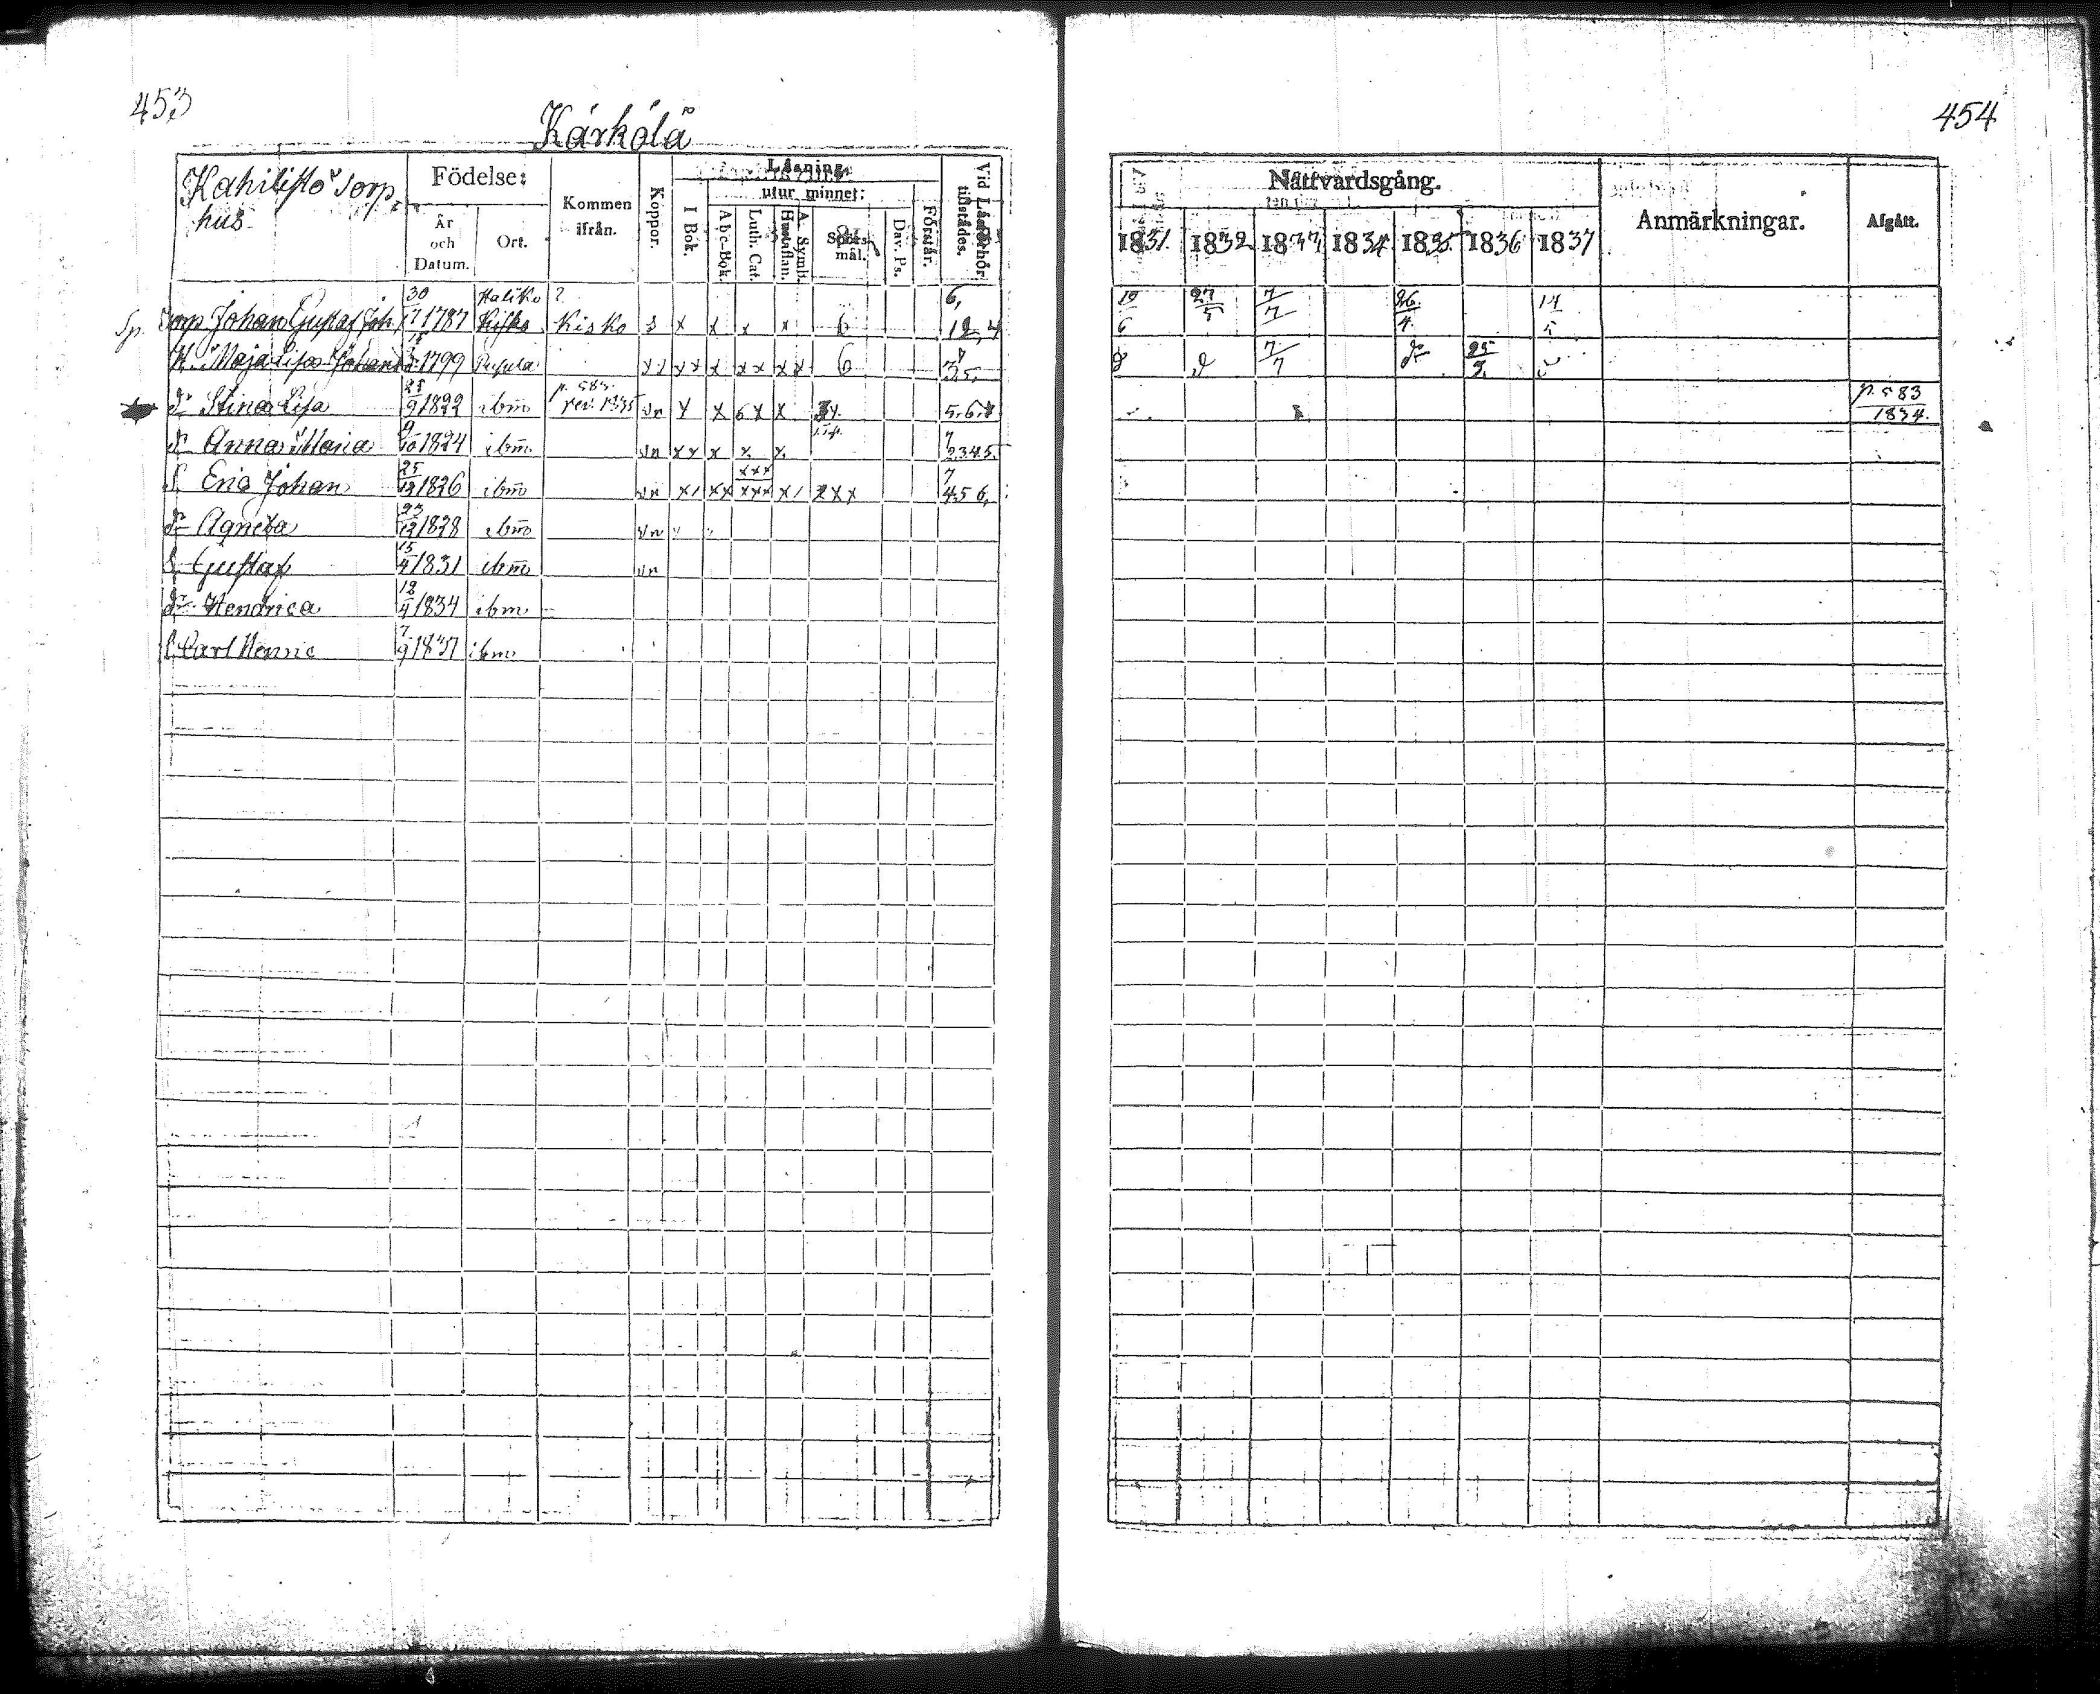 453
Kärkölä
Kahilisto Torp
hus
Födelse:
År
och
Datum.
Ort.
Kommen
ifrån.
Koppor.
Läsning.
I Bok.
utur minnet:
Abc-Bok.
Luth. Cat.
A. Symb.
Hustaflan.
Spörs-
mål.
Dav. Ps.
Förstår.
Vid Läseförhör
tillstädes.
Torp Johan Gustaf Joh 30/7 1787 Haliko Kisko ? Kisko s x x x x 6 6, 12, 4
H. Maja Lisa Johans 1799 Pusula xx xx x xx xx 6 7 35
dr Stina Lisa 28/9 1822 ibm p. 583 rev. 1835 vn x x 6x x 5.6.
dr Anna Maria 9/10 1824 ibm vn xx x x x 7 2345.
S. Eric Johan 25/12 1826 ibm vn x/ xx xxx xxx x/ xxx 7 456.
dr Agneta 23/12 1828 ibm vn
S. Gustaf 15/4 1831 ibm vn
dr Hendrica 12/4 1834 ibm
S. Carl Henric 7/9 1837 ibm
454
Nattvardsgång.
1831. 1832 1833 1834 1835 1836 1837
Anmärkningar.
Afgått.
19/6 27/5 7/7 26/4 14/5
7/7 25/9
p. 583
1834.